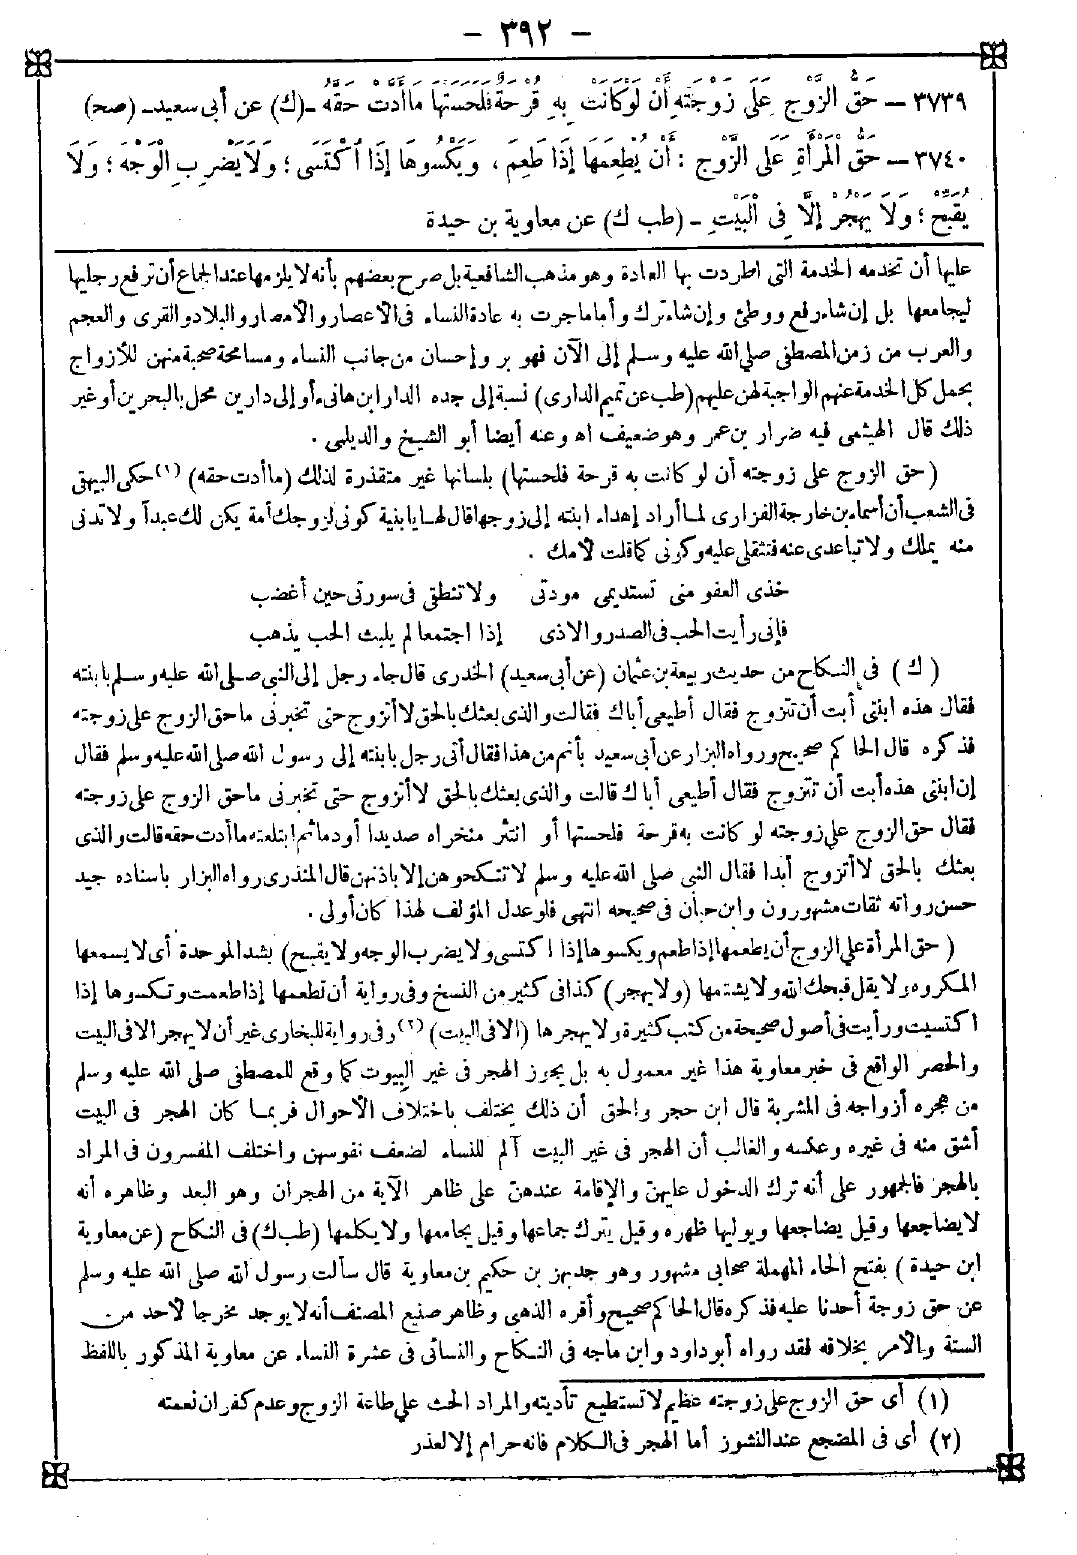 - ٣٩٢ -
٣٧٣٩ - حَقُّ الزَّوْجِ عَلَى زَوْجَتِهِ أَنْ لَوْ كَانَتْ بِهِ قُرْحَةٌ فَلَحَسَتْهَا مَا أَدَّتْ حَقَّهُ - (ك) عن أبى سعيد - (صح)
٣٧٤٠ - حَقُّ الْمَرْأَةِ عَلَى الزَّوْجِ : أَنْ يُطْعِمَهَا إِذَا طَعِمَ ، وَيَكْسُوهَا إِذَا اكْتَسَى ؛ وَلَا يَضْرِبِ الْوَجْهَ ؛ وَلَا
يُقَبِّحْ ؛ وَلَا يَهْجُرْ إِلَّا فِى الْبَيْتِ - (طب ك) عن معاوية بن حيدة
عليها أن تخدمه الخدمة التى اطردت بها العادة وهو مذهب الشافعية بل صرح بعضهم بأنه لا يلزمها عند الجماع أن ترفع رجليها
ليجامعها بل إن شاء رفع ووطئ وإن شاء ترك وأما ما جرت به عادة النساء فى الأعصار والأمصار والبلاد والقرى والعجم
والعرب من زمن المصطفى صلى الله عليه وسلم إلى الآن فهو بر وإحسان من جانب النساء ومسامحة صحبة منهن للأزواج
بحمل كل الخدمة عنهم الواجبة لهن عليهم (طب عن تميم الدارى) نسبة إلى جده الدار ابن هانىء أو إلى دارين محل بالبحرين أو غير
ذلك قال الهيثمى فيه ضرار بن عمر وهو ضعيف اه وعنه أيضا أبو الشيخ والديلمى .
(حق الزوج على زوجته أن لو كانت به قرحة فلحستها) بلسانها غير متقذرة لذلك (ما أدت حقه) (١) حكى البيهقى
فى الشعب أن أسماء بن خارجة الفزارى لما أراد إهداء ابنته إلى زوجها قال لها يا بنية كونى لزوجك أمة يكن لك عبدآ ولا تدنى
منه يملك ولا تباعدى عنه فتثقلى عليه وكونى كما قلت لأمك .
خذى العفو منى تستديمى مودتى ولا تنطقى فى سورتى حين أغضب
فإنى رأيت الحب فى الصدر والاذى إذا اجتمعا لم يلبث الحب يذهب
( ك ) فى النكاح من حديث ربيعة بن عثمان (عن أبى سعيد) الخدرى قال جاء رجل إلى النبى صلى الله عليه وسلم بابنته
فقال هذه ابنتى أبت أن تتزوج فقال أطيعى أباك فقالت والذى بعثك بالحق لا أتزوج حتى تخبرنى ما حق الزوج على زوجته
فذكره قال الحاكم صحيح ورواه البزار عن أبى سعيد بأتم من هذا فقال أتى رجل بابنته إلى رسول الله صلى الله عليه وسلم فقال
إن ابنتى هذه أبت أن تتزوج فقال أطيعى أباك قالت والذى بعثك بالحق لا أتزوج حتى تخبرنى ما حق الزوج على زوجته
فقال حق الزوج على زوجته لو كانت به قرحة فلحستها أو انتثر منخراه صديدا أو دما ثم ابتلعته ما أدت حقه قالت والذى
بعثك بالحق لا أتزوج أبدا فقال النبى صلى الله عليه وسلم لا تنكحوهن إلا باذنهن قال المنذرى رواه البزار باسناده جيد
حسن رواته ثقات مشهورون وابن حبان فى صحيحه انتهى فلو عدل المؤلف لهذا كان أولى .
( حق المرأة على الزوج أن يطعمها إذا طعم ويكسوها إذا اكتسى ولا يضرب الوجه ولا يقبح) بشد الموحدة أى لا يسمعها
المكروه ولا يقل قبحك الله ولا يشتمها (ولا يهجر) كذا فى كثير من النسخ وفى رواية أن تطعمها إذا طعمت وتكسوها إذا
اكتسيت ورأيت فى أصول صحيحة من كتب كثيرة ولا يهجرها (الا فى البيت) (٢) وفى رواية للبخارى غير أن لا يهجر الا فى البيت
والحصر الواقع فى خبر معاوية هذا غير معمول به بل يجوز الهجر فى غير البيوت كما وقع للمصطفى صلى الله عليه وسلم
من هجره أزواجه فى المشربة قال ابن حجر والحق أن ذلك يختلف باختلاف الأحوال فربما كان الهجر فى البيت
أشق منه فى غيره وعكسه والغالب أن الهجر فى غير البيت آلم للنساء لضعف نفوسهن واختلف المفسرون فى المراد
بالهجر فالجمهور على أنه ترك الدخول عليهن والإقامة عندهن على ظاهر الآية من الهجران وهو البعد وظاهره أنه
لا يضاجعها وقيل يضاجعها ويوليها ظهره وقيل يترك جماعها وقيل يجامعها ولا يكلمها (طب ك) فى النكاح (عن معاوية
ابن حيدة ) بفتح الحاء المهملة صحابى مشهور وهو جد بهز بن حكيم بن معاوية قال سألت رسول الله صلى الله عليه وسلم
عن حق زوجة أحدنا عليه فذكره قال الحاكم صحيح وأقره الذهبى وظاهر صنيع المصنف أنه لا يوجد مخرجا لأحد من
الستة والأمر بخلافه لقد رواه أبو داود وابن ماجه فى النكاح والنسائى فى عشرة النساء عن معاوية المذكور باللفظ
(١) أى حق الزوج على زوجته عظيم لا تستطيع تأديته والمراد الحث على طاعة الزوج وعدم كفران نعمته
(٢) أى فى المضجع عند النشوز أما الهجر فى الكلام فانه حرام إلا لعذر